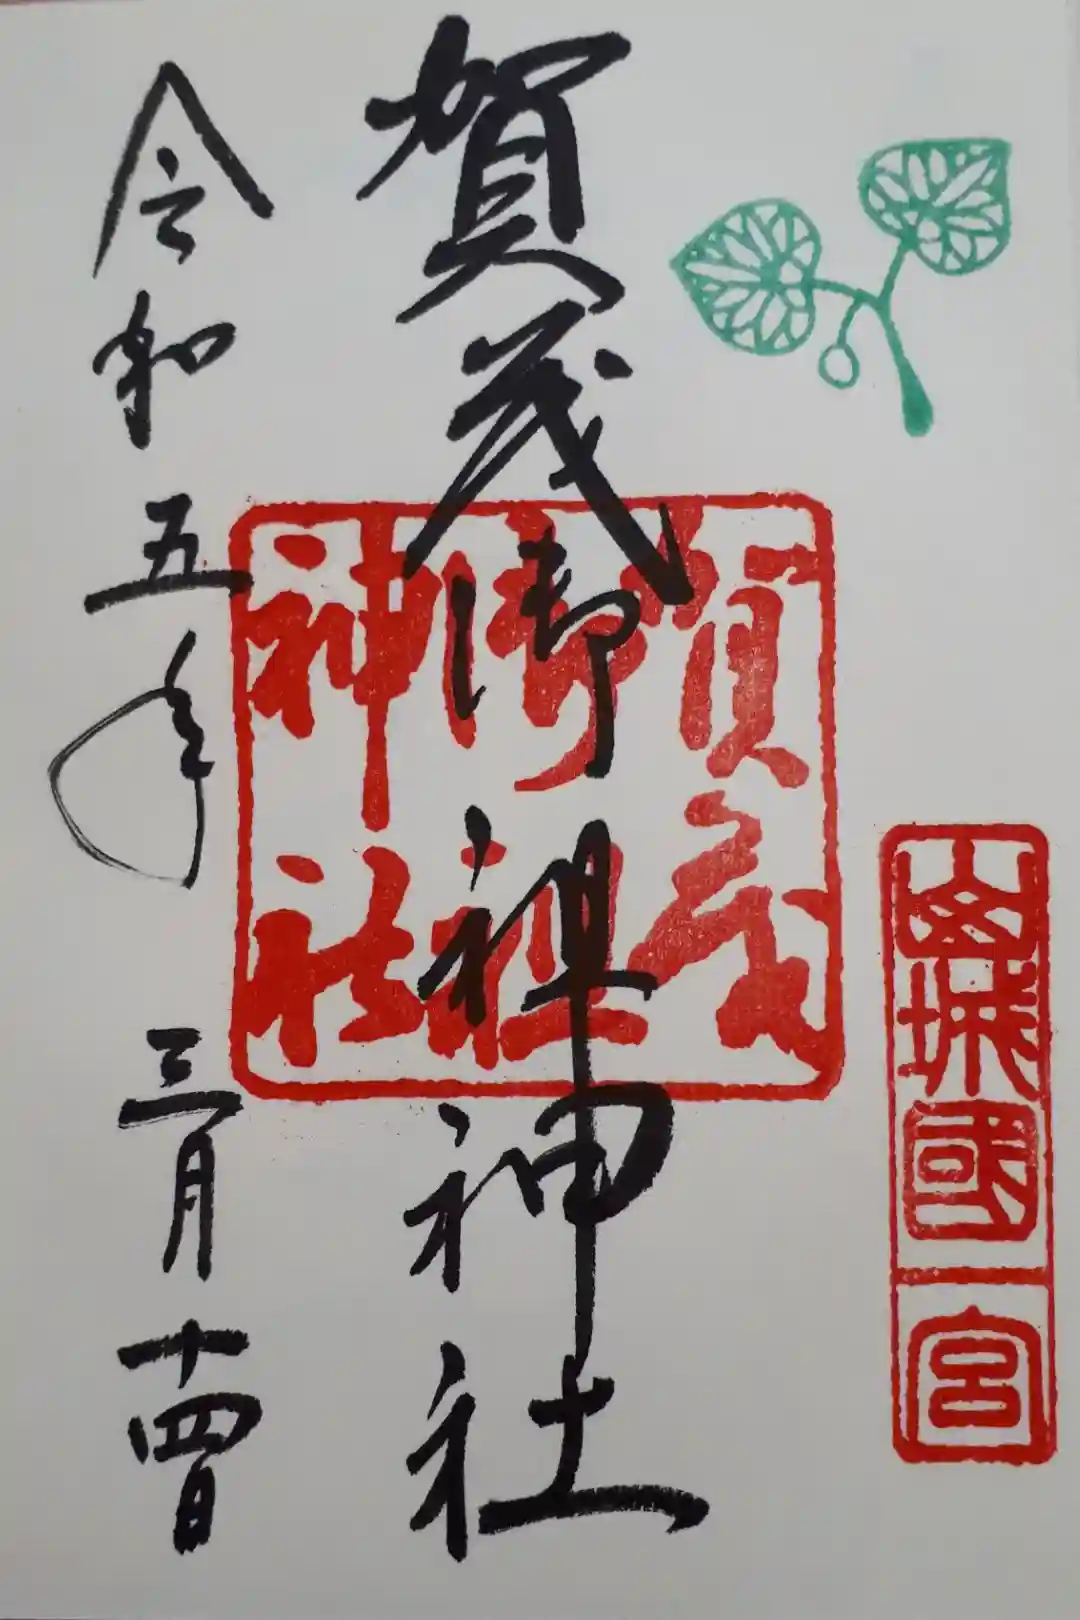 山城國一宮
賀茂御祖神社
賀茂
御祖
神社
令和五年三月十四日